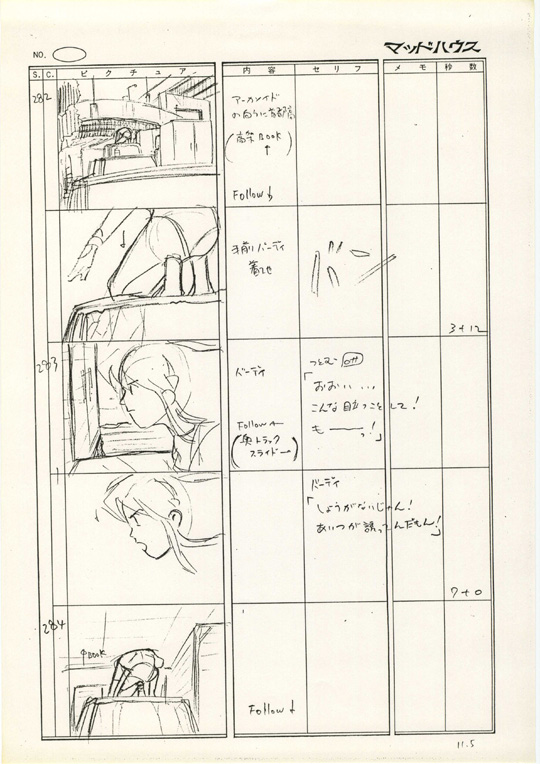 マッドハウス
NO.
S. C. ピクチュア 内容 セリフ メモ 秒数
282
アーカノイド
の向うに首都高
(高架 BOOK
↑)
Follow↓
手前にバーディ
着地
3+12
283
バーディ
つとむ off
「おおい...
こんな目立つことして!
も──っ!」
Follow←
(奥トラック
スライド→)
バーディ
「しょうがないじゃん!
あいつが誘ってんだもん!」
7+0
284
↑BOOK
Follow↓
11.5